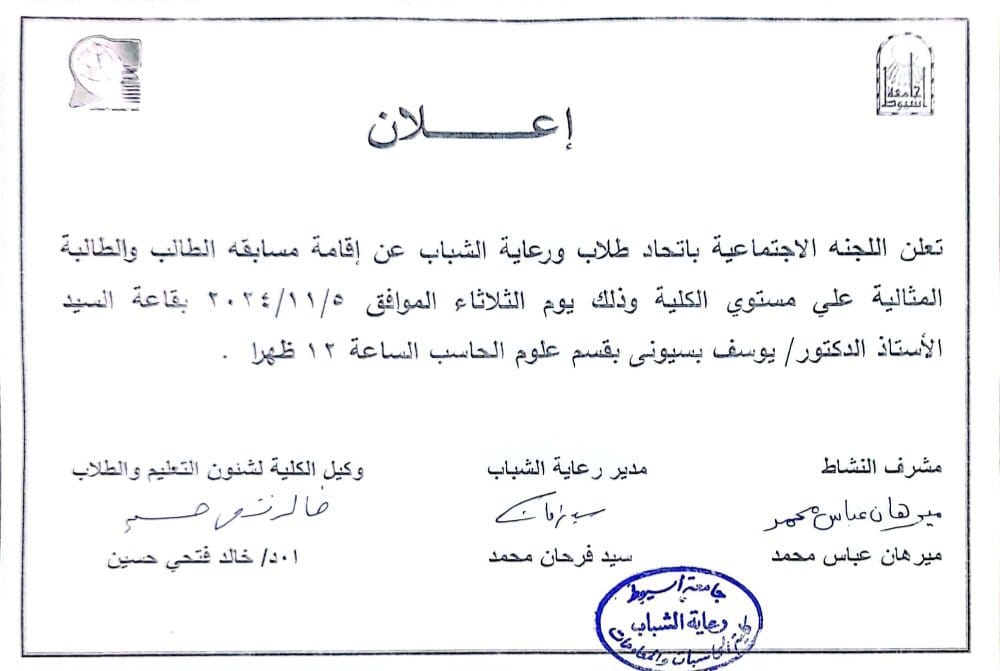 جامعة
أسيوط
إعـــــــلان
تعلن اللجنه الاجتماعية باتحاد طلاب ورعاية الشباب عن إقامة مسابقه الطالب والطالبة
المثالية علي مستوي الكلية وذلك يوم الثلاثاء الموافق ٢٠٢٤/١١/٥ بقاعة السيد
الأستاذ الدكتور/ يوسف بسيونى بقسم علوم الحاسب الساعة ١٢ ظهرا .
مشرف النشاط مدير رعاية الشباب وكيل الكلية لشئون التعليم والطلاب
ميرهان عباس محمد
ميرهان عباس محمد سيد فرحان محمد ا٠د/ خالد فتحي حسين
جامعة أسيوط
رعاية الشباب
كلية الحاسبات والمعلومات